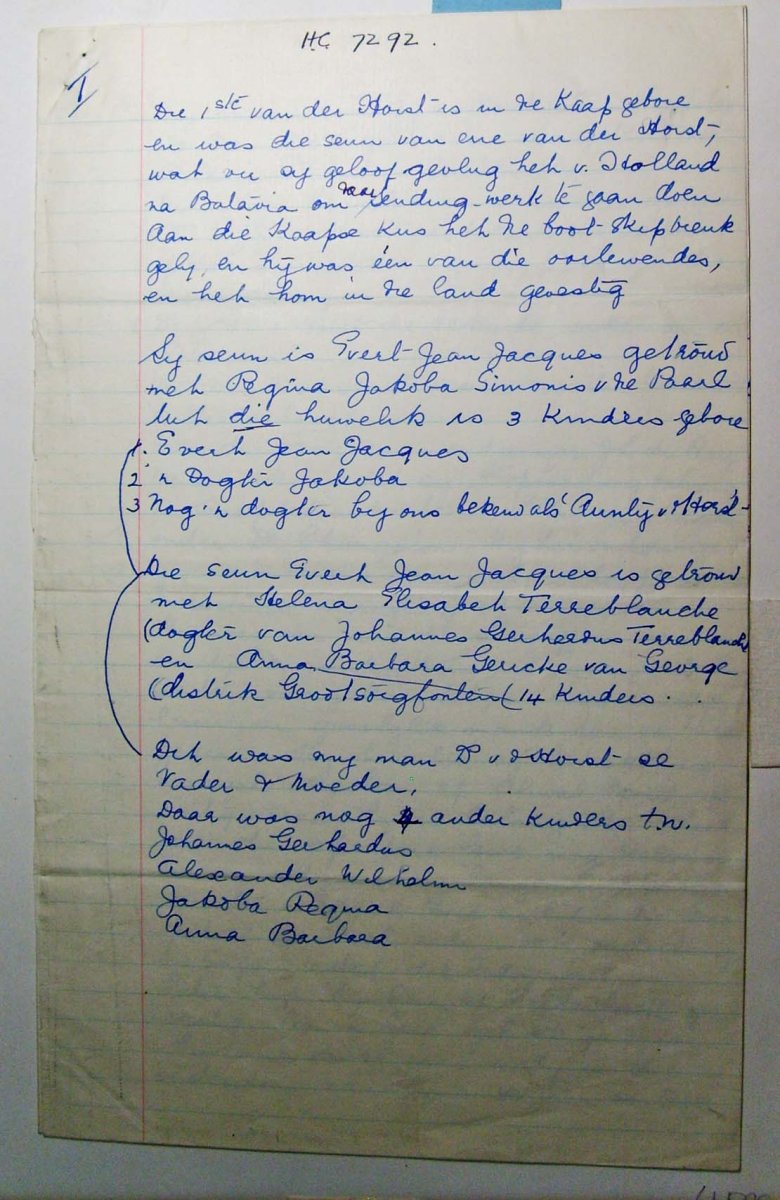 H.C. 7292.
I
Die 1ste van der Horst is in die Kaap gebore
en was die seun van ene van der Horst,
wat vir sy geloof gevlug het v. Holland
na Batavia om daar sending-werk te gaan doen
Aan die Kaapse kus het die boot-skipbreuk
gely, en hy was één van die oorlewendes,
en het hom in die land gevestig
Sy seun is Evert-Jean Jacques getroud
met Regina Jakoba Simonis v die Paarl
Uit die huwelik is 3 kinders gebore
1. Evert Jean Jacques
2 'n Dogter Jakoba
3 Nog 'n dogter by ons bekend als Aunty v d Horst
Die seun Evert Jean Jacques is getroud
met Helena Elisabet Terreblanche
(dogter van Johannes Gerhardus Terreblanche
en Anna Barbara Gericke van George
(distrik Grootsorgfontein( 14 kinders.
Dit was my man D v d Horst se
Vader & Moeder.
Daar was nog 4 ander kinders t.w.
Johannes Gerhardus
Alexander Wilhelm
Jakoba Regina
Anna Barbara